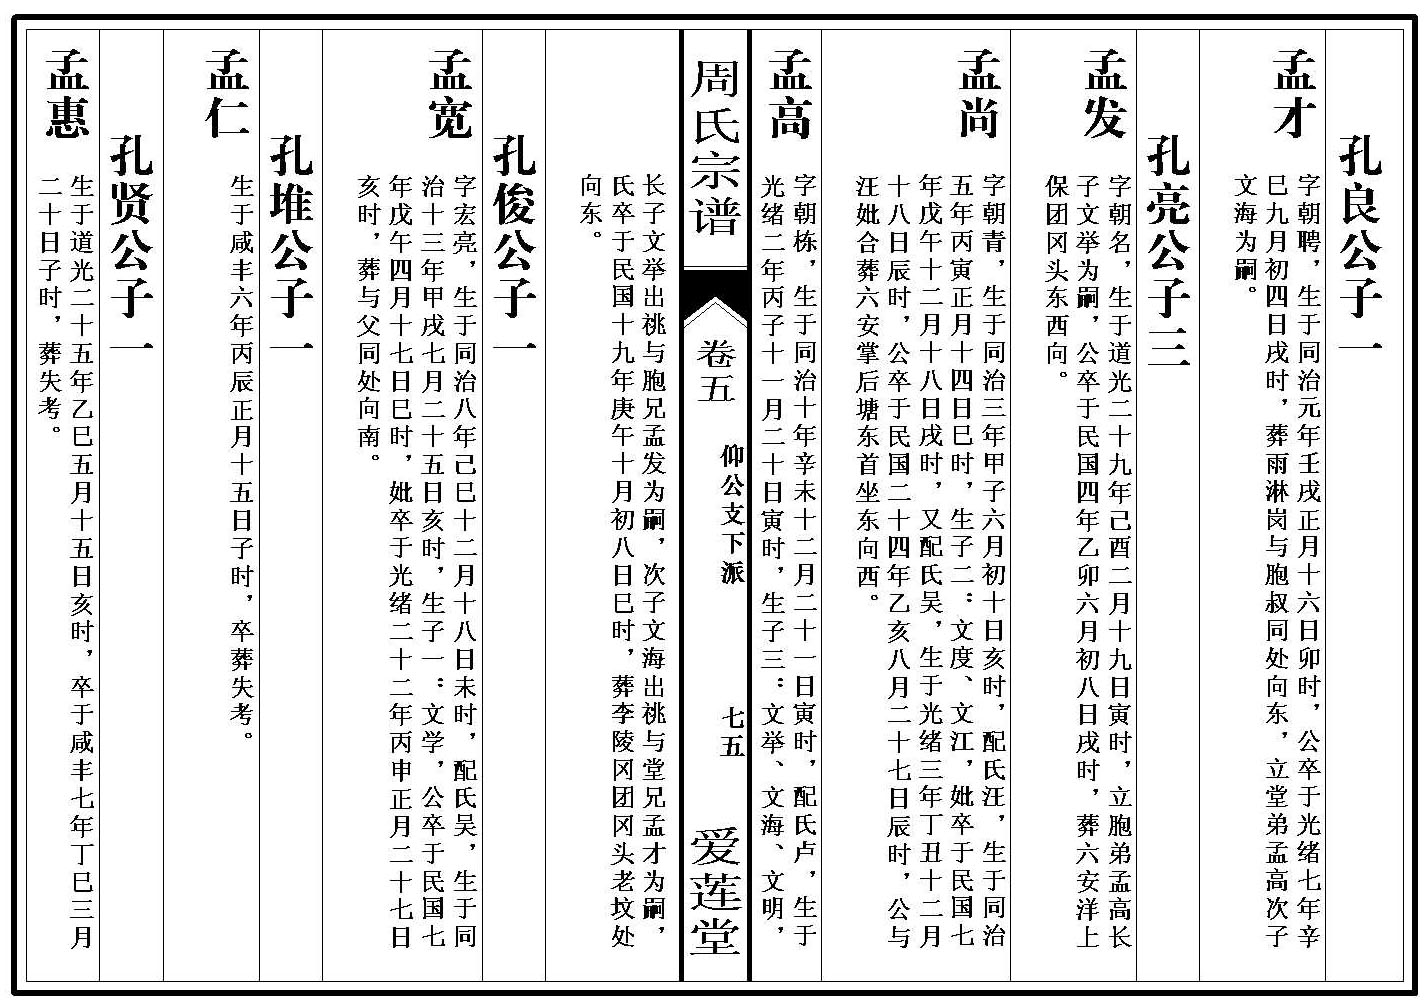 孔良公子一
孟才
字朝聘，生于同治元年壬戌正月十六日卯时，公卒于光绪七年辛
巳九月初四日戌时，葬雨淋岗与胞叔同处向东，立堂弟孟高次子
文海为嗣。
孔亮公子三
孟发
字朝名，生于道光二十九年己酉二月十九日寅时，立胞弟孟高长
子文举为嗣，公卒于民国四年乙卯六月初八日戌时，葬六安洋上
保团冈头东西向。
孟尚
字朝青，生于同治三年甲子六月初十日亥时，配氏汪，生于同治
五年丙寅正月十四日巳时，生子二：文度、文江，妣卒于民国七
年戊午十二月十八日戌时，又配氏吴，生于光绪三年丁丑十二月
十八日辰时，公卒于民国二十四年乙亥八月二十七日辰时，公与
汪妣合葬六安掌后塘东首坐东向西。
孟高
字朝栋，生于同治十年辛未十二月二十一日寅时，配氏卢，生于
光绪二年丙子十一月二十日寅时，生子三：文举、文海、文明，
周氏宗谱
卷五
仰公支下派
七五
爱莲堂
长子文举出祧与胞兄孟发为嗣，次子文海出祧与堂兄孟才为嗣，
氏卒于民国十九年庚午十月初八日巳时，葬李陵冈团冈头老坟处
向东。
孔俊公子一
孟宽
字宏亮，生于同治八年己巳十二月十八日未时，配氏吴，生于同
治十三年甲戌七月二十五日亥时，生子一：文学，公卒于民国七
年戊午四月十七日巳时，妣卒于光绪二十二年丙申正月二十七日
亥时，葬与父同处向南。
孔堆公子一
孟仁
生于咸丰六年丙辰正月十五日子时，卒葬失考。
孔贤公子一
孟惠
生于道光二十五年乙巳五月十五日亥时，卒于咸丰七年丁巳三月
二十日子时，葬失考。